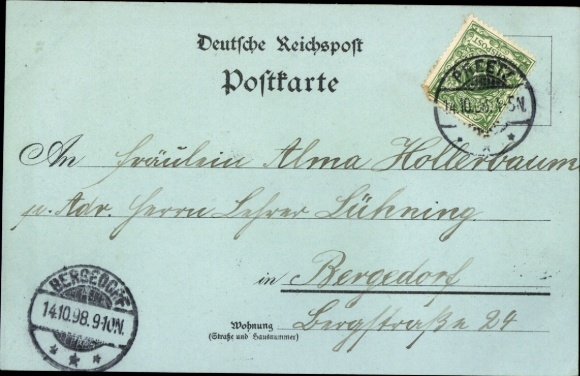 Deutsche Reichspost
Postkarte
PREETZ
14.10.98. 5N.
An Fräulein Alma Hollerbaum
p. Adr. Herrn Lehrer Lühning
in Bergedorf
Wohnung Bergstraße 24
(Straße und Hausnummer)
BERGEDORF
14.10.98.9-10N.